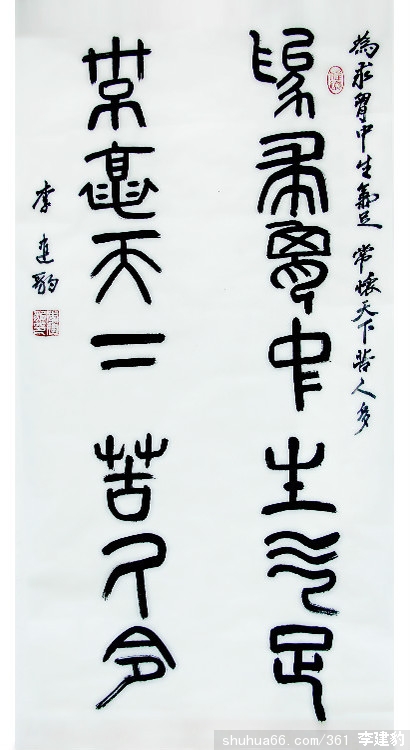 為求胷中生氣足 常懷天下苦人多
為求胷中生气足
常懷天下苦人多
李建豹
shuhua66.com/361 李建豹